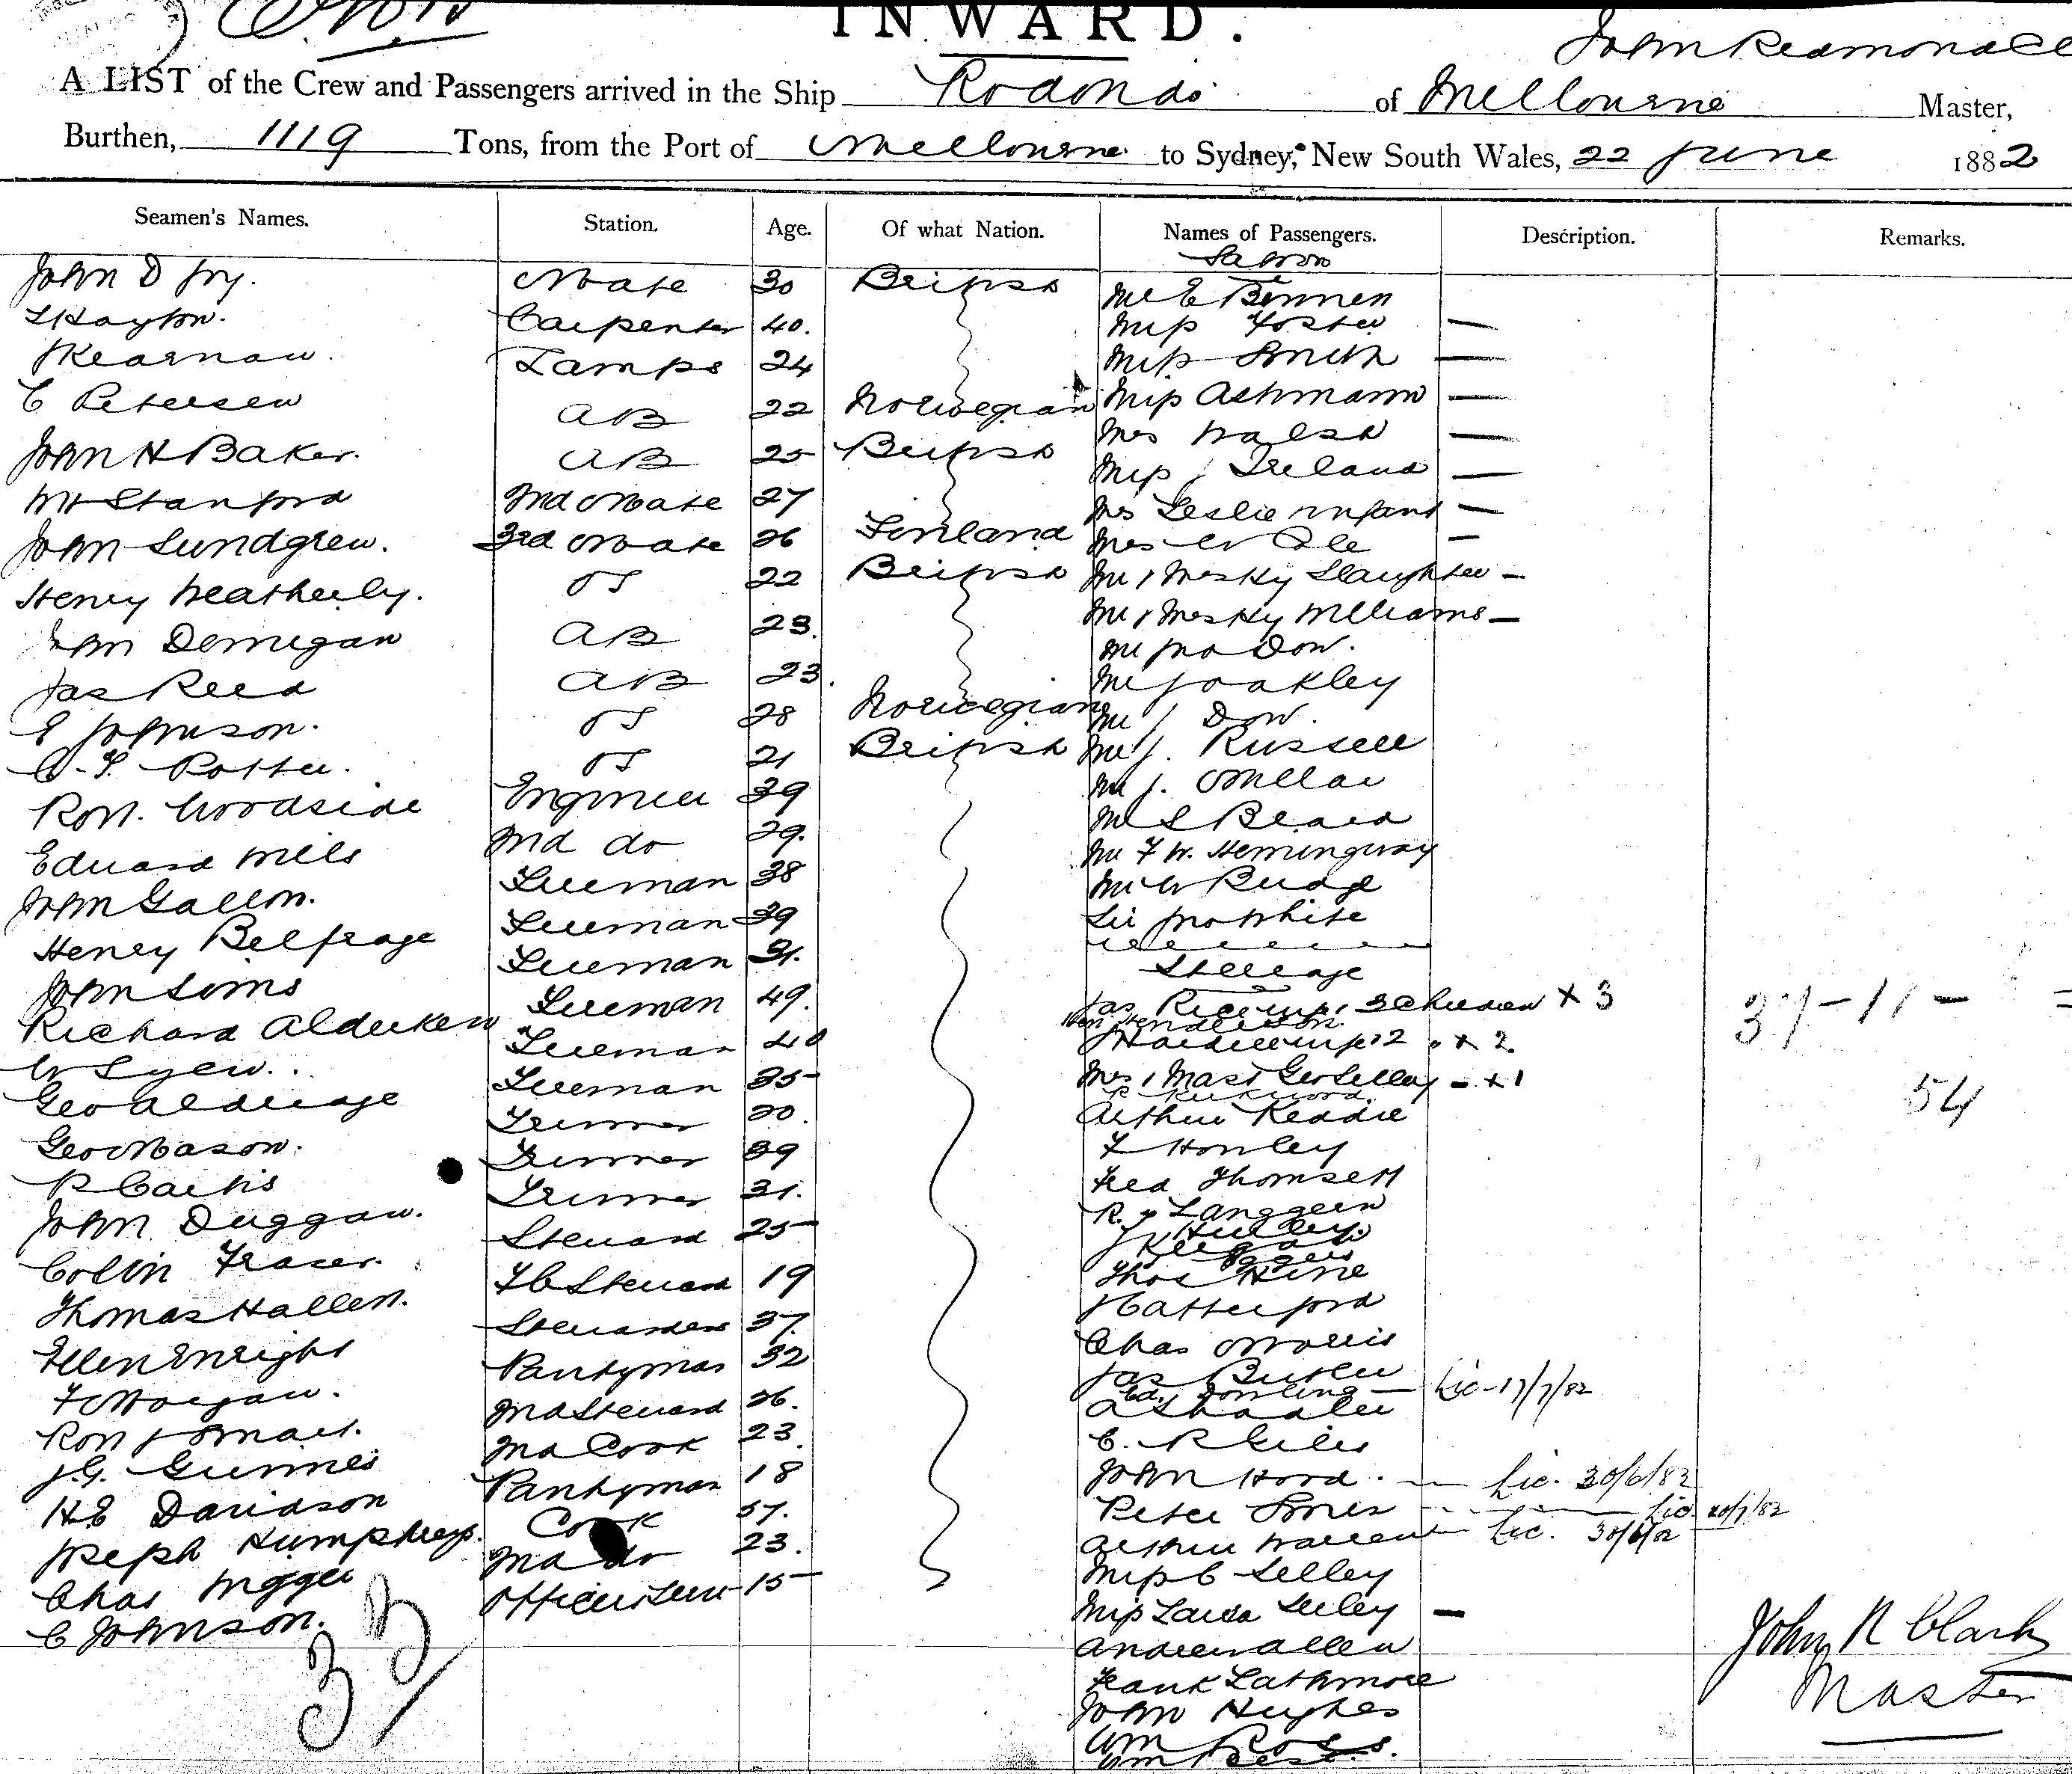 INWARD.
A LIST of the Crew and Passengers arrived in the Ship Rodondo of Melbourne Master,
Burthen, 1119 Tons, from the Port of Melbourne to Sydney, New South Wales, 22 June 1882
Seamen's Names. Station. Age. Of what Nation. Names of Passengers. Description. Remarks.
Saloon
John D Fry. Mate 30 British Mr E
Hayton. Carpenter 40. Miss Foster —
Kearnan. Lamps 24 Miss Smith —
C Petersen AB 22 Norwegian Miss Ashmann —
John H Baker. AB 25 British Mrs Walsh —
Wm Stanford 2nd Mate 27 Miss Ireland —
John Lundgren. 3rd Mate 26 Finland Mrs Leslie infant —
Henry Weatherly. OS 22 British Mrs W —
Dernigan AB 23. Mr & Mrs Hy Slaughter —
Jas Reed AB 23. Mr & Mrs Hy Williams —
E Johnson. OS 28 Norwegian Mr Jno Dow.
Potter. OS 21 British Mr J Oakley
Robt. Woodside Engineer 39 Mr J Dow.
Edward Mills 2nd do 29. Mr J. Russell
John Gallon. Fireman 38 Mr J. Mellar
Henry Belfrage Fireman 39 Mr S Beard
John Sims Fireman 31. Mr F W. Hemingway
Richard Aldercken Fireman 49. Mr W Rudge
W Fireman 40 Jno White
Geo Alderidge Fireman 35
Geo Mason. Trimmer 20. Steerage
R Curtis Trimmer 39 Jas Rice wife & 3 children × 3
John Duggan. Trimmer 31. Henderson.
Colin Fraser. Steward 25 wife & 2 × 2
Thomas Hallen. F C Steward 19 Mrs & Mast Geo Selley — × 1
Ellen Enright Stewardess 37. R Kirkwood
F Morgan. Pantryman 32 Arthur Keddie
Robt J Smart. 2nd Steward 26. F Honley
J.G. Gunnes 2nd Cook 23. Fred Thomsett
H E Davidson Pantryman 18 R. Langgeen
Joseph Humphreys. Cook 37. J Hurley.
Chas Wigger 2nd do 23. Thos Hine
C Johnson. Officers Serv 15
33
Chas Morris
Jas Butler
Ed. Dowling — Lic - 17/7/82
A Shadler
C. R Giles
John Hood. — Lic. 30/6/82
Peter Jones — Lic. 20/7/82
Arthur Warrent — Lic. 30/6/82
Miss C Selley
Miss Louisa Selley —
Andrew Allen
Frank Lathmore
John Hughes
Wm Ross.
37 - 11 -
54
John R Clark
Master